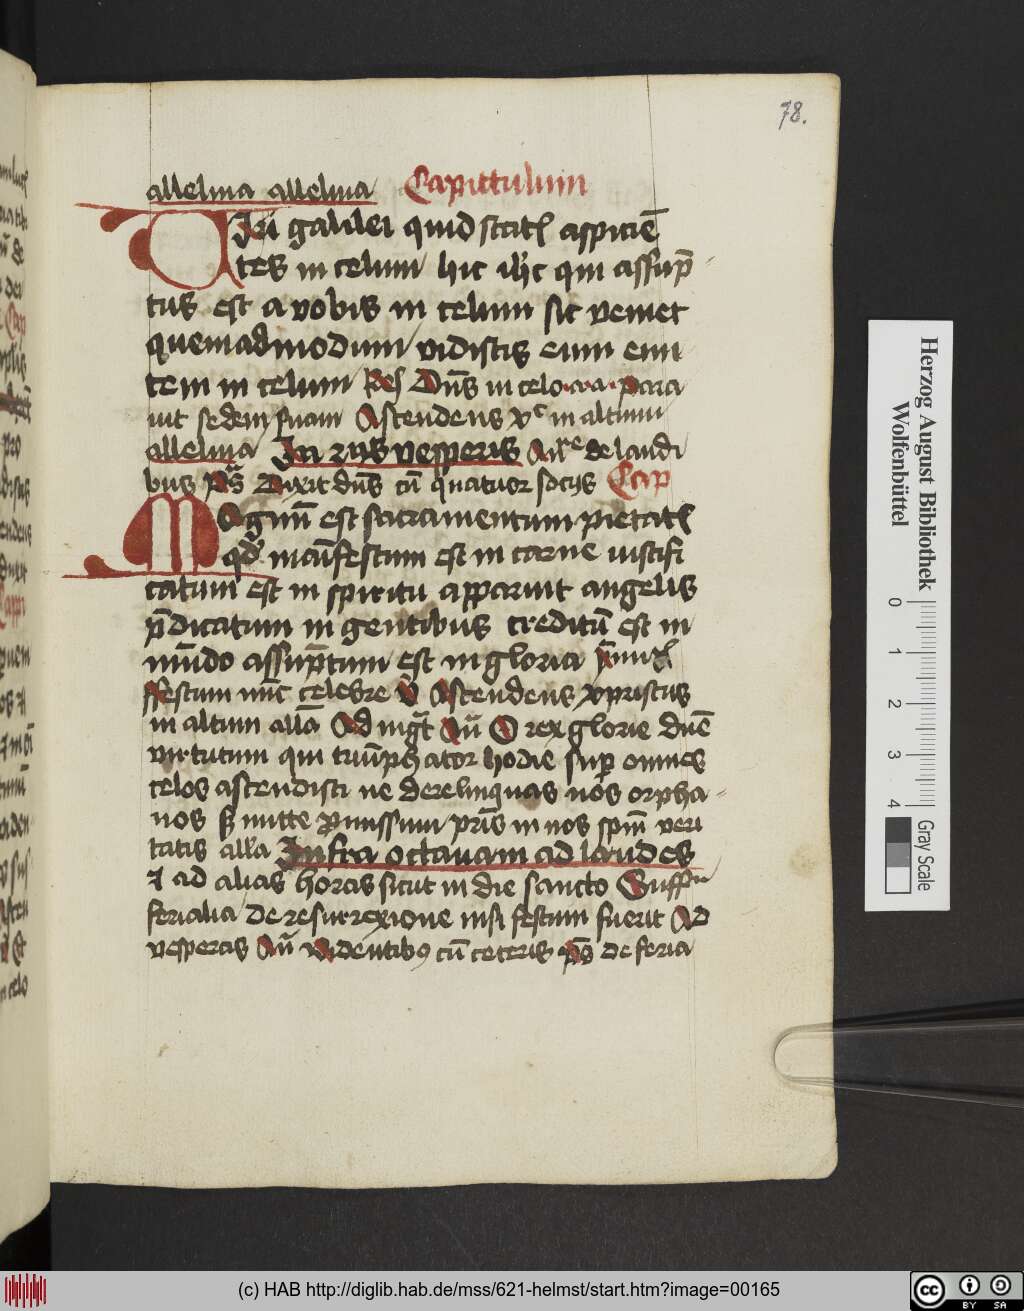 78.
alleluia alleluia Capittulum
Viri galilei quid statis aspiciē
tes in celum hic ihc qui assūp
tus est a vobis in celum sic veniet
quemadmodum vidistis eum eun
tem in celum Res Dūs in celo para
uit sedem suam Ascendens xp̄c in altum
alleluia In 2iis vesperis An̄e de laudi
bus p̄s Dixit dūs cū quatuor sociis Cap
Magnū est sacramentum pietatis
qd̄ manifestum est in carne iustifi
catum est in spiritu apparuit angelis
p̄dicatum in gentibus creditū est in
mūdo assūptum est in gloria
ffestum nūc celebre v̄ Ascendens xpristus
in altum allā Ad mgt̄ An̄ O rex glorie dn̄e
virtutum qui triūphator hodie sup̄ omnes
celos ascendisti ne derelinquas nos orpha
nos s̄ mitte promissum pr̄is in nos spm̄ veri
tatis alla Infra octauam ad laudes
et ad alias horas sicut in die sancto Suffrā
ferialia de resurrexione nisi festum fuerit Ad
vesperas An̄ Videntibus cū ceteris p̄s de feria
Herzog August Bibliothek
Wolfenbüttel
0 1 2 3 4
Gray Scale
(c) HAB http://diglib.hab.de/mss/621-helmst/start.htm?image=00165
cc BY SA